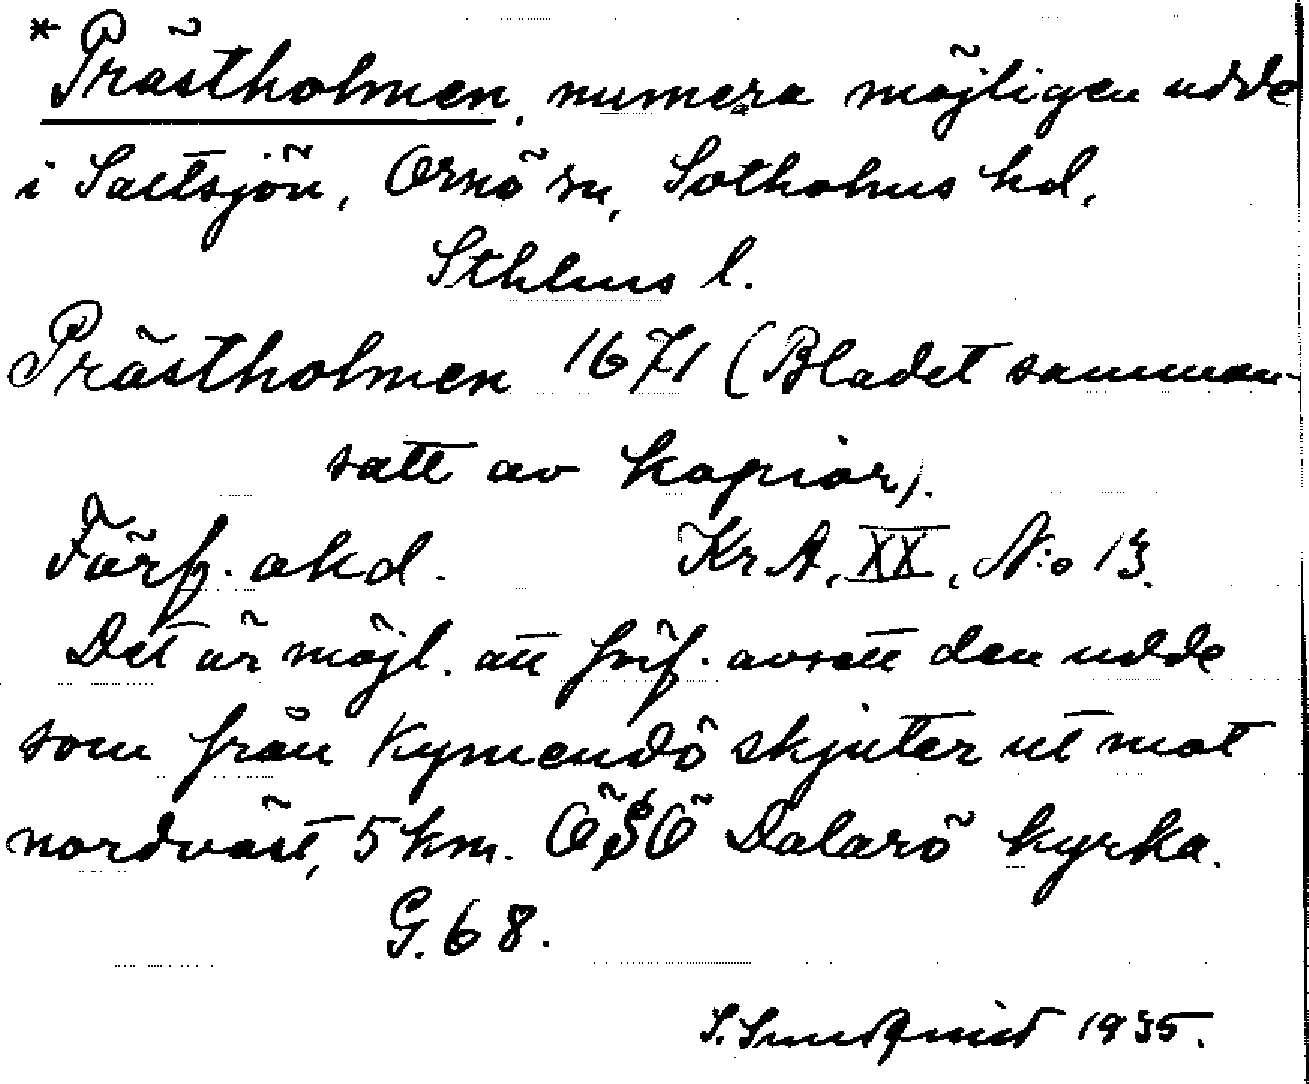 *Prästholmen, numera möjligen udde
i Saltsjön, Ornö sn, Sotholms hd,
Sthlms l.
Prästholmen 1671 (Bladet samman-
satt av kopior).
Förf. okd. Kr A, XX, N:o 13.
Det är möjl. att förf. avsett den udde
som från Kymendö skjuter ut mot
nordväst, 5 km. ÖSÖ Dalarö kyrka.
G. 68.
S. Sundqvist 1935.